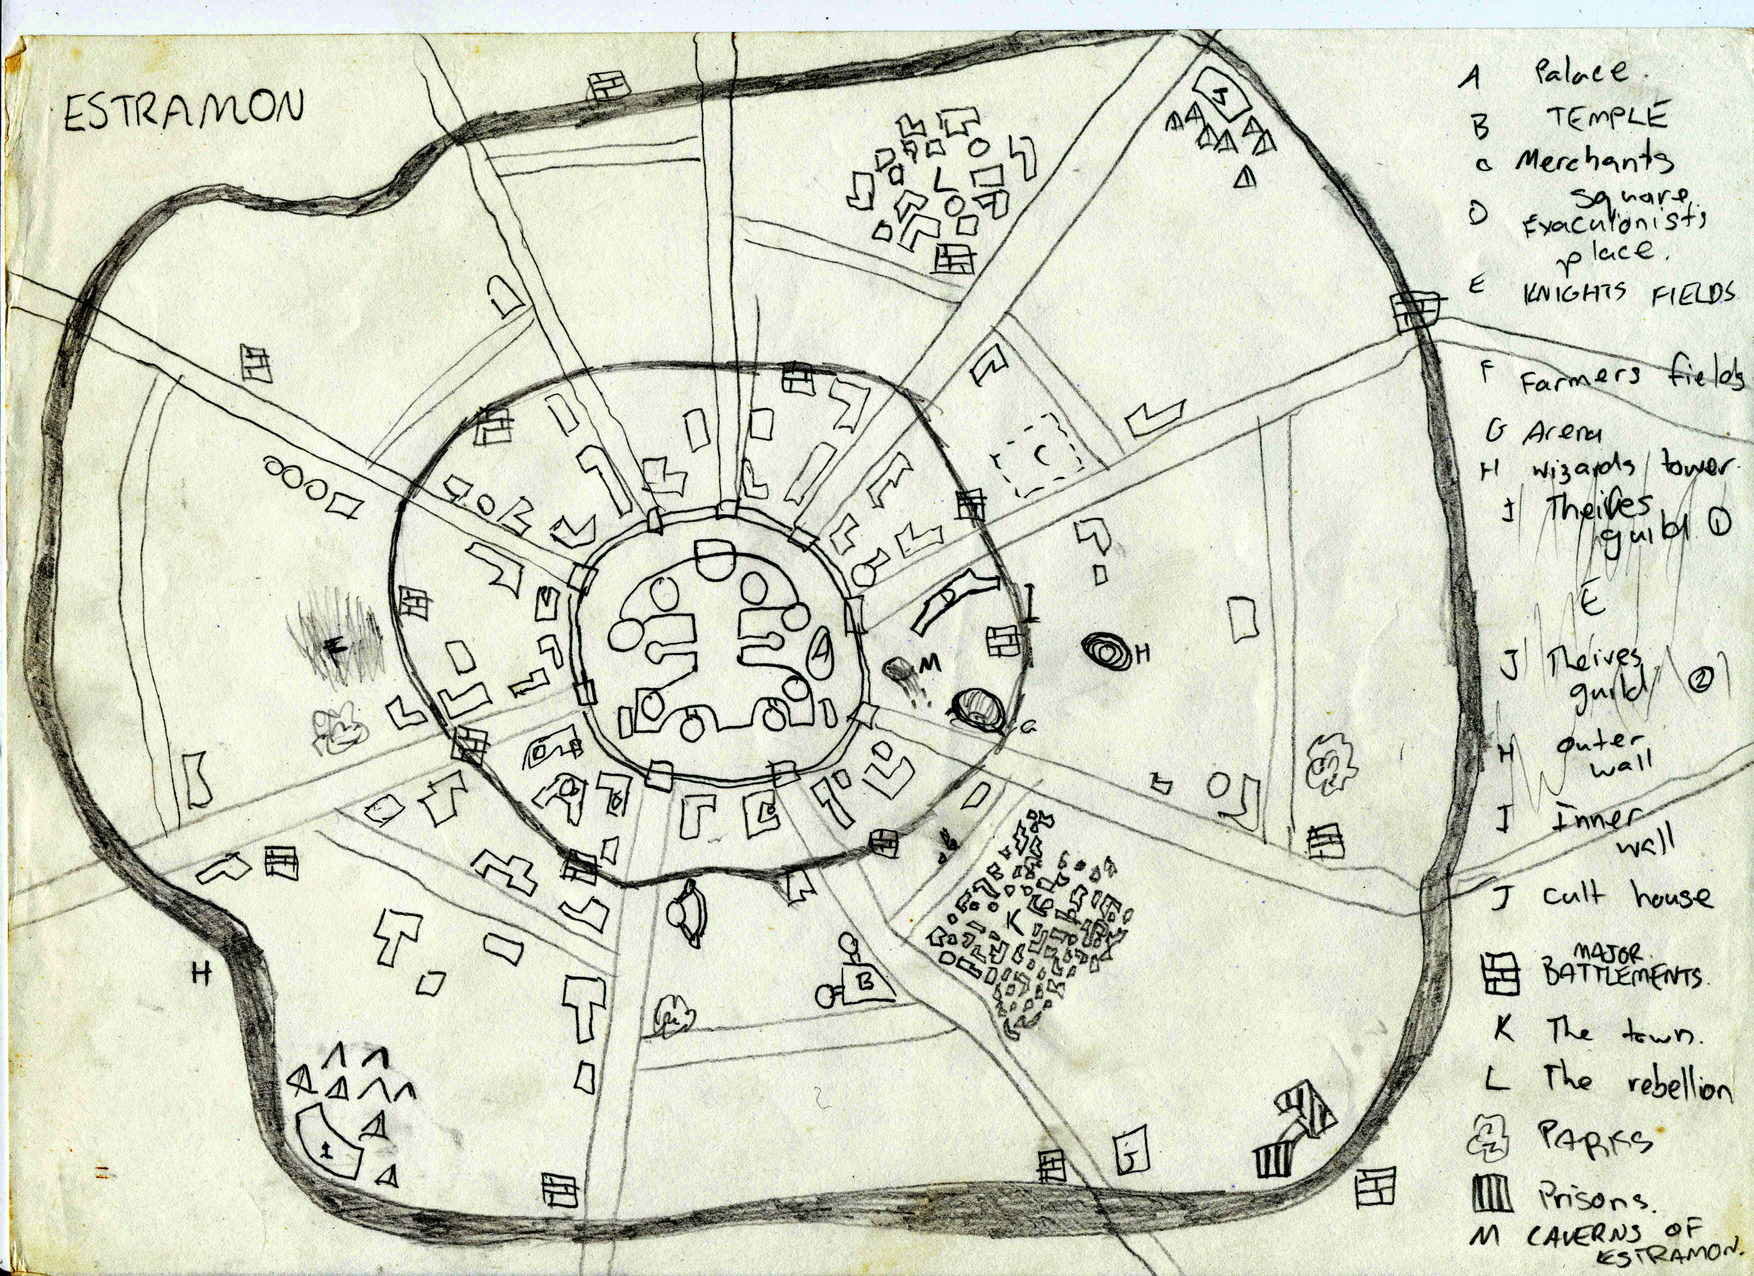 ESTRAMON
A Palace.
B TEMPLE
C Merchants
square.
D Exaculonists
place.
E KNIGHTS FIELDS
F Farmers fields
G Arena
H wizards tower.
I Theives
guild ①
E
J Theives
guild ②
H outer
wall
I Inner
wall
J Cult house
MAJOR
BATTLEMENTS.
K The town.
L The rebellion
PARKS
Prisons.
M CAVERNS OF
ESTRAMON.
J
L
C
D
I
M
H
G
A
F
K
B
H
1
J